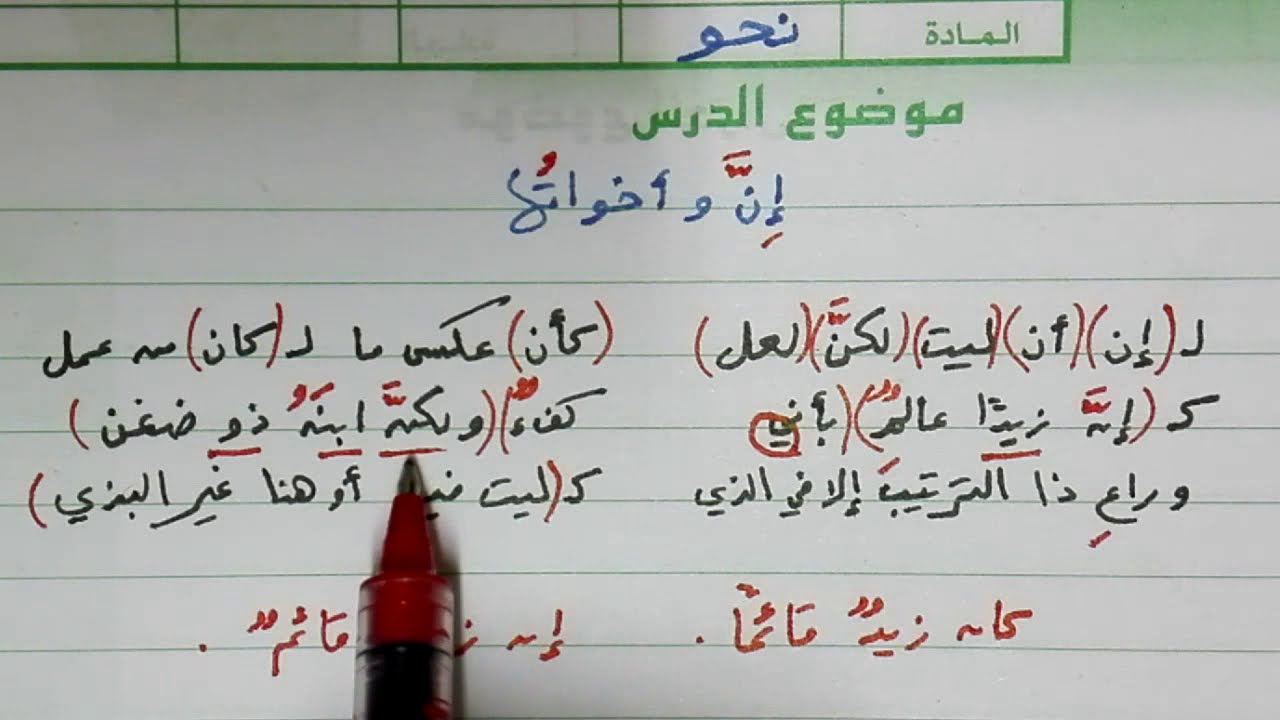 المادة نحو
موضوع الدرس
إِنَّ و أخواتُها
لـ (إن) (أن) (ليت) (لكنَّ) (لعل) (كأن) عكس ما لـ (كان) من عمل
كـ (إنَّ زيدًا عالمٌ) (بأني كفءٌ) (ولكنَّ ابنَهُ ذو ضغن)
وراعِ ذا الترتيبَ إلا في الذي كـ (ليت أو هنا غير البذي)
كان زيدٌ قائمًا . إن قائمٌ .